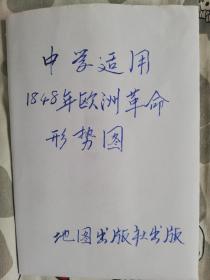 中学适用
1848年欧洲革命
形势图
地图出版社出版